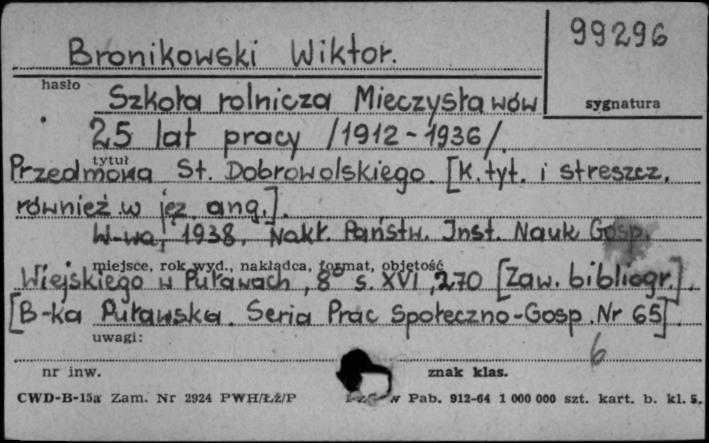 Bronikowski Wiktor.
99296
hasło
sygnatura
Szkoła rolnicza Mieczysławów
25 lat pracy /1912-1936/.
tytuł
Przedmowa St. Dobrowolskiego. [K. tyt. i streszcz.
również w jęz. ang.].
W-wa, 1938, Nakł. Państw. Inst. Nauk Gosp.
miejsce, rok wyd., nakładca, format, objętość
Wiejskiego w Puławach, 8° s. XVI, 270 [Zaw. bibliogr.].
[B-ka Puławska. Seria Prac Społeczno-Gosp. Nr 65].
uwagi:
6
nr inw.
znak klas.
CWD-B-15a Zam. Nr 2924 PWH/Łż/P w Pab. 912-64 1 000 000 szt. kart. b. kl. 5.